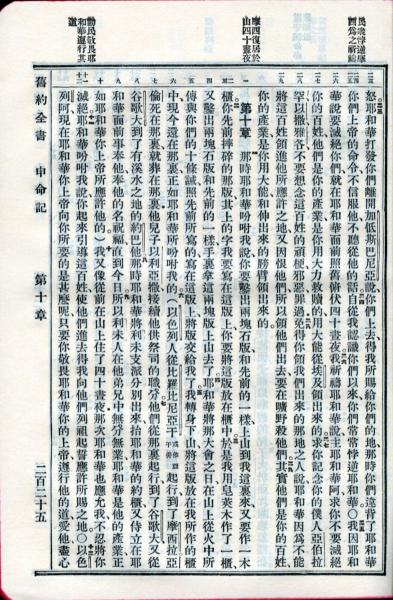 民衆悖逆摩西爲之祈禱
摩西復居於山四十晝夜
勸民敬畏耶和華遵行其道
怒耶和華打發你們離開加低斯巴尼亞說你們上去得我所賜給你們的地那時你們違背了耶和華
你們上帝的命令不信服他不聽從他的話自從我認識你們以來你們常常悖逆耶和華○我因耶和
華說要滅絕你們就在耶和華面前照舊俯伏四十晝夜我祈禱耶和華說主耶和華阿求你不要滅絕
你的百姓他們是你的產業是你用大力救贖的用大能從埃及領出來的求你記念你的僕人亞伯拉
罕以撒雅各不要想念這百姓的頑梗邪惡罪過免得你領我們出來的那地之人說耶和華因爲不能
將這百姓領進他所應許之地又因恨他們所以領他們出去要在曠野殺他們其實他們是你的百姓
你的產業是你用大能和伸出來的膀臂領出來的
第十章 那時耶和華吩咐我說你要鑿出兩塊石版和先前的一樣上山到我這裏來又要作一木
櫃你先前摔碎的那版其上的字我要寫在這版上你要將這版放在櫃中於是我用皂莢木作了一櫃
又鑿出兩塊石版和先前的一樣手裏拿這兩塊版上山去了耶和華將那大會之日在山上從火中所
傳與你們的十條誡照先前所寫的寫在這版上將版交給我了我轉身下山將這版放在我所作的櫃
中現今還在那裏正如耶和華所吩咐我的（以色列人從比羅比尼亞干起行到了摩西拉亞
倫死在那裏就葬在那裏他兒子以利亞撒接續他供祭司的職分他們從那裏起行到了谷歌大又從
谷歌大到了有溪水之地的約巴他那時耶和華將利未支派分別出來抬耶和華的約櫃又侍立在耶
和華面前事奉他奉他的名祝福直到今日所以利未人在他弟兄中無分無業耶和華是他的產業正
如耶和華你上帝所應許他的）我又像從前在山上住了四十晝夜那次耶和華也應允我不忍將你
滅絕耶和華吩咐我說你起來引導這百姓使他們進去得我向他們列祖起誓應許所賜之地○以色
列阿現在耶和華你上帝向你所要的是甚麼呢只要你敬畏耶和華你的上帝遵行他的道愛他盡心
舊約全書 申命記 第十章 二百二十五